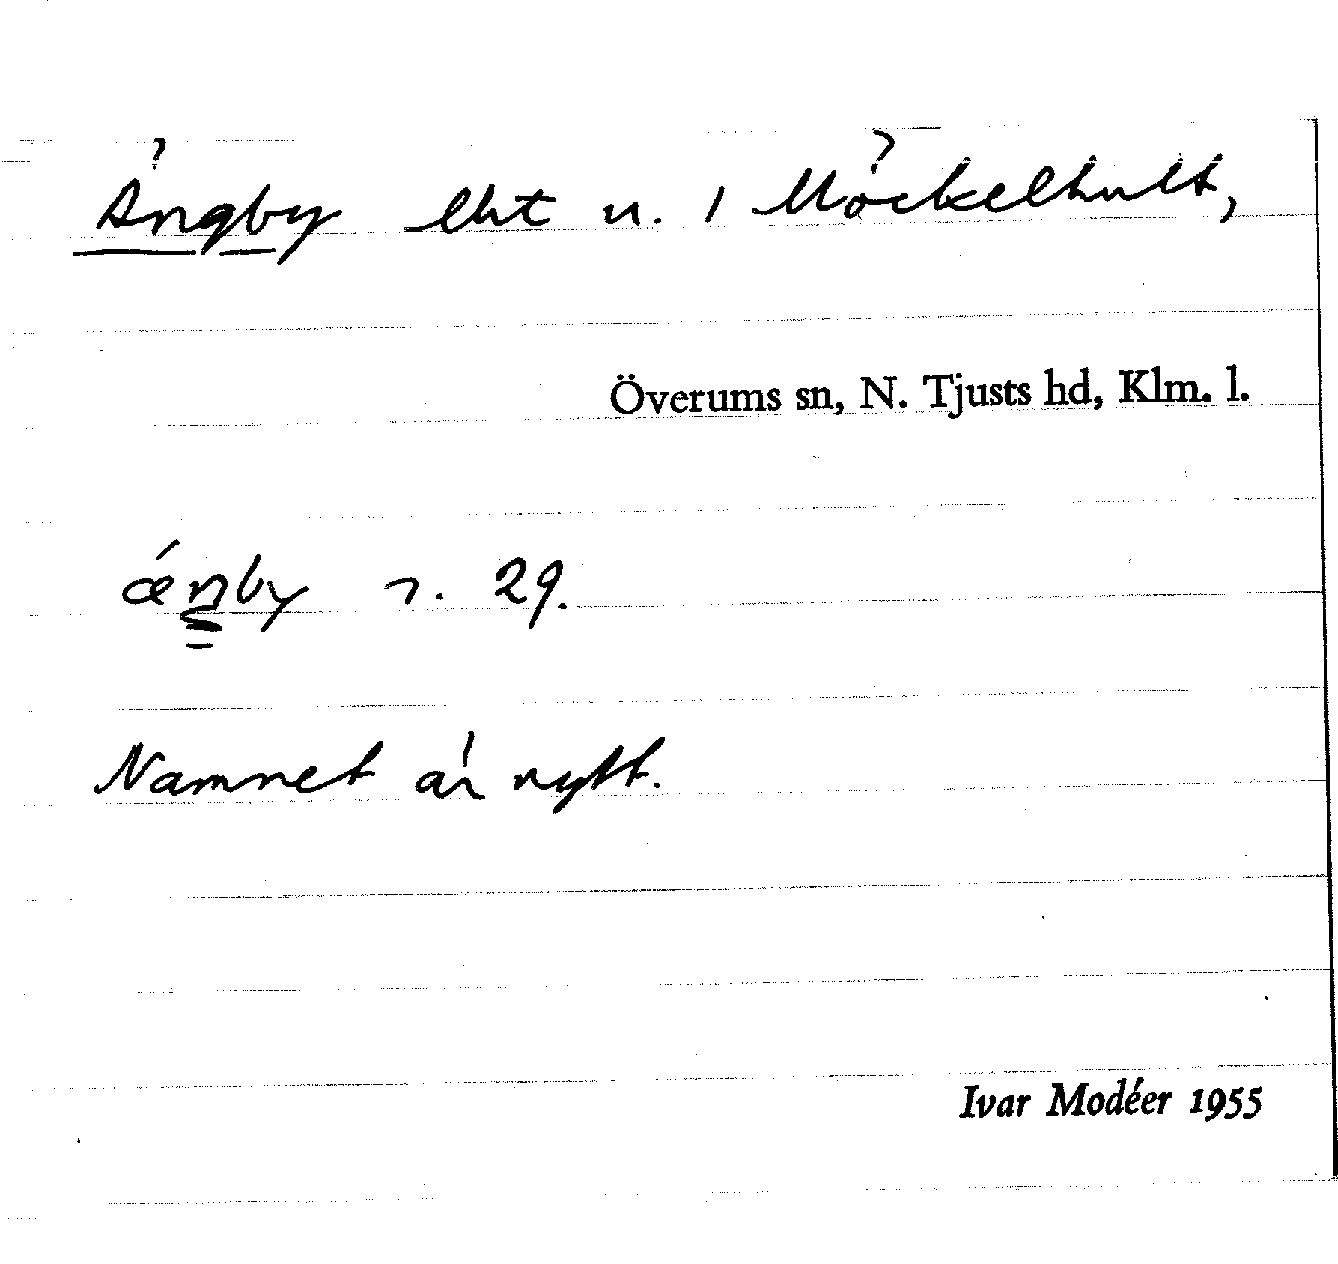 Ängby lht u. 1 Möckelhult,
Överums sn, N. Tjusts hd, Klm. l.
ǽnby r. 29.
Namnet är nytt.
Ivar Modéer 1955